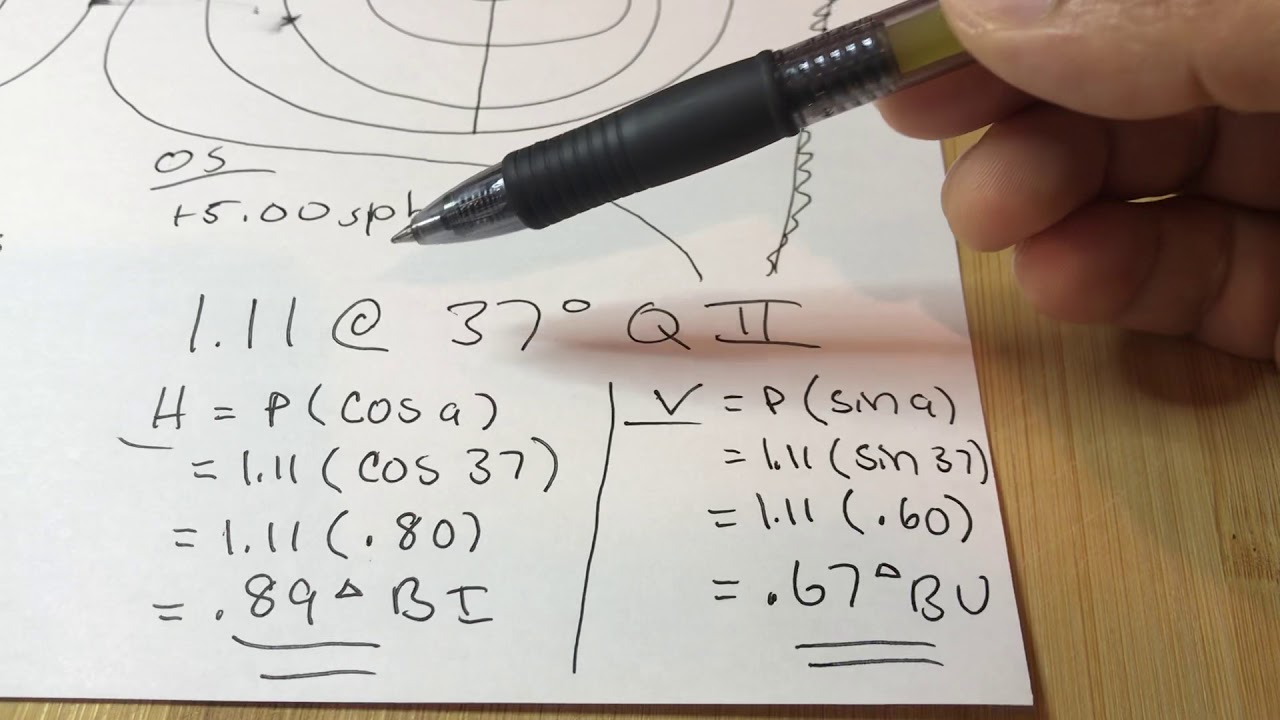 OS
+5.00 sph
1.11 @ 37° Q II
H = P(cos a)
= 1.11 (cos 37)
= 1.11 (.80)
= .89 △ BI
V = P(sin a)
= 1.11 (sin 37)
= 1.11 (.60)
= .67 △ BU